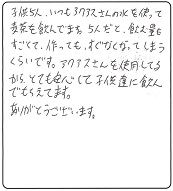 子供5人、いつもアクアスさんの水を使って
麦茶を飲んでます。5人だと、飲む量も
すごくて、作っても、すぐなくなってしまう
くらいです。アクアスさんを使用してる
から、とても安心して子供達に飲ん
でもらえてます。
ありがとうございます。